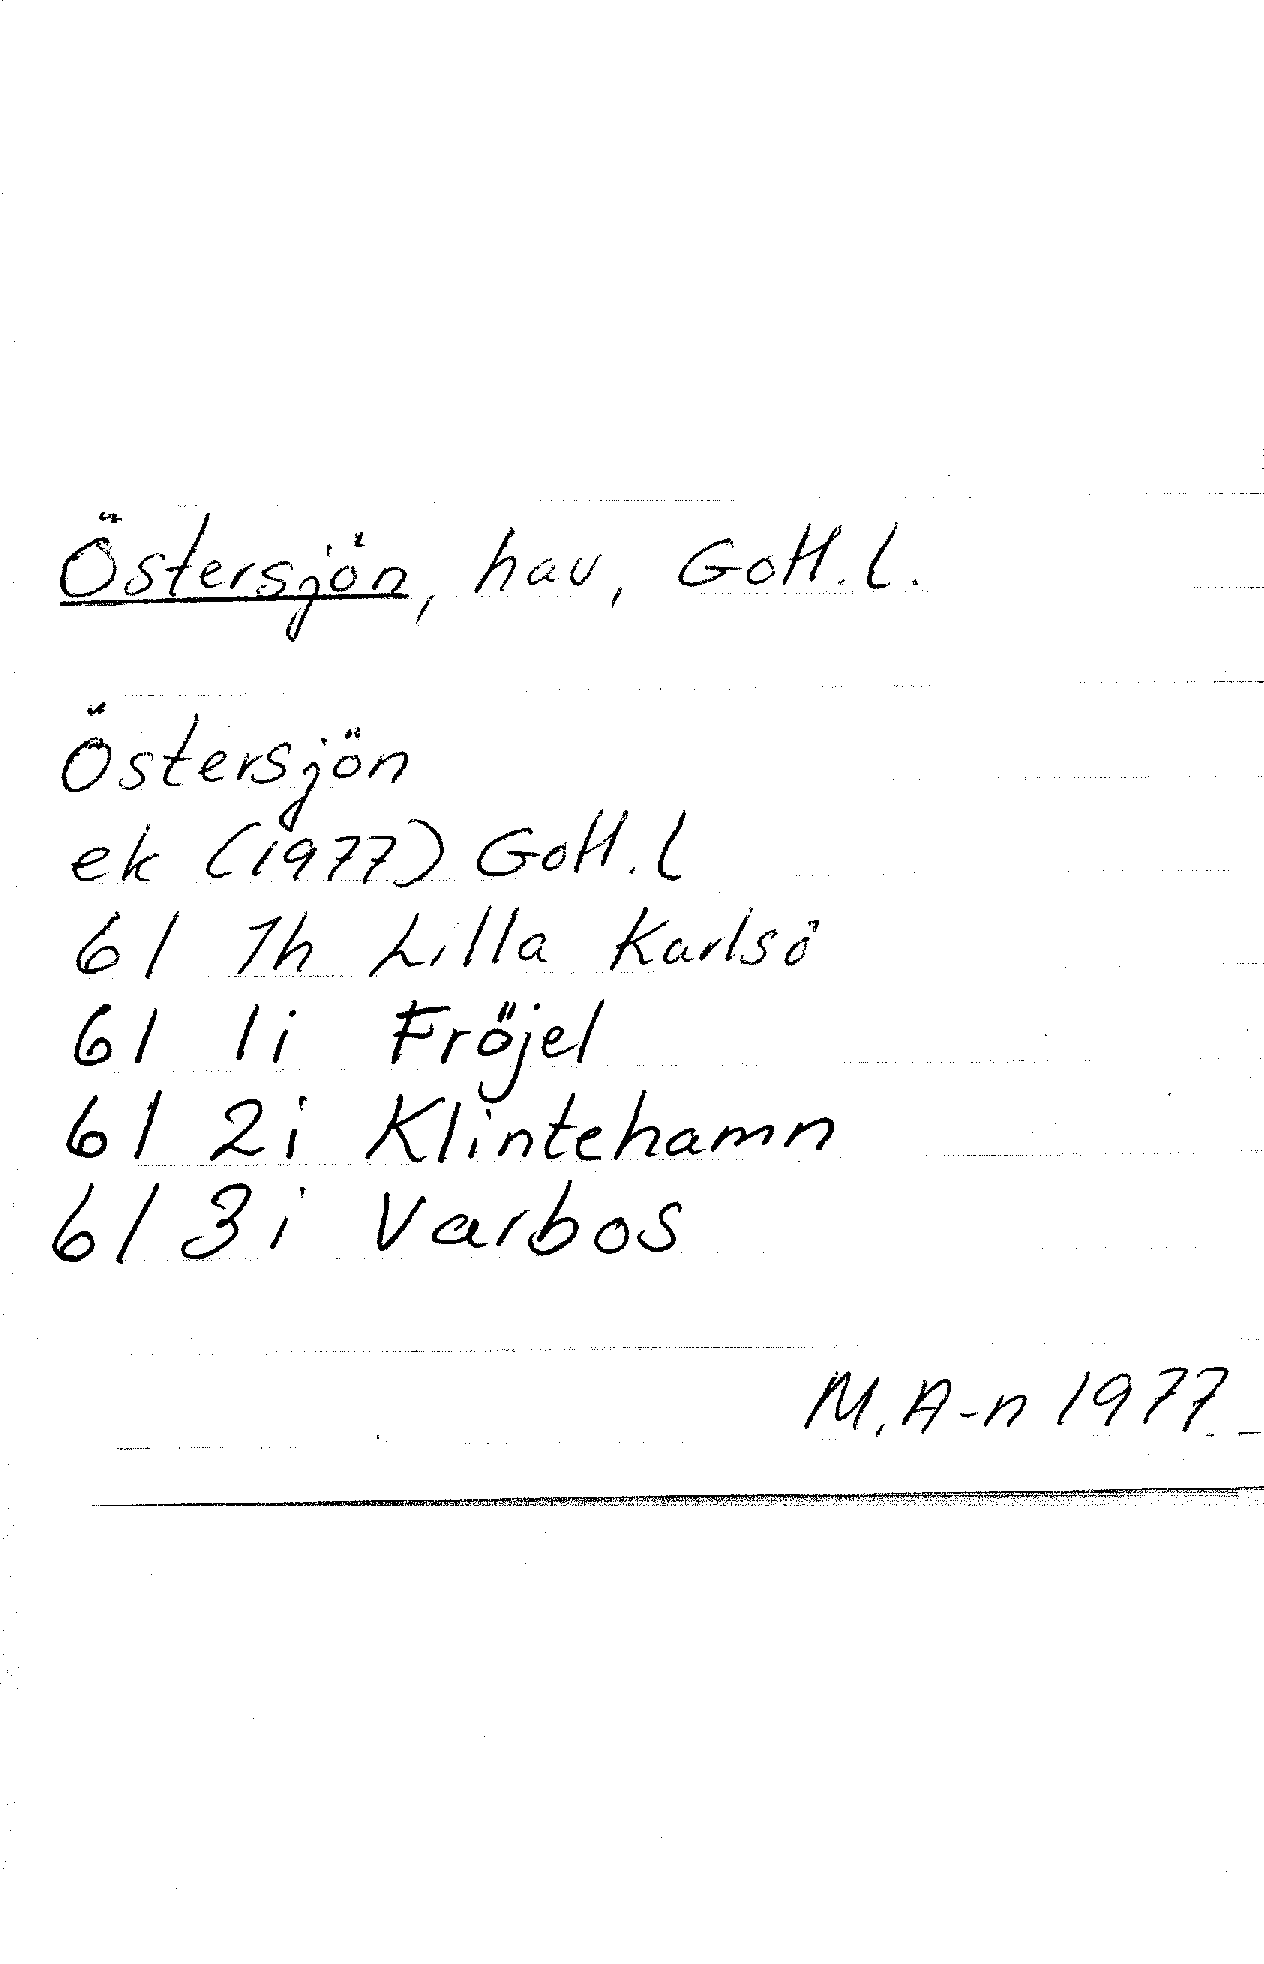 Östersjön, hav, Gotl. l.
Östersjön
ek (1977) Gotl. l
6I 1h Lilla Karlsö
6I 1i Fröjel
6I 2i Klintehamn
6I 3i Varbos
M. A-n 1977